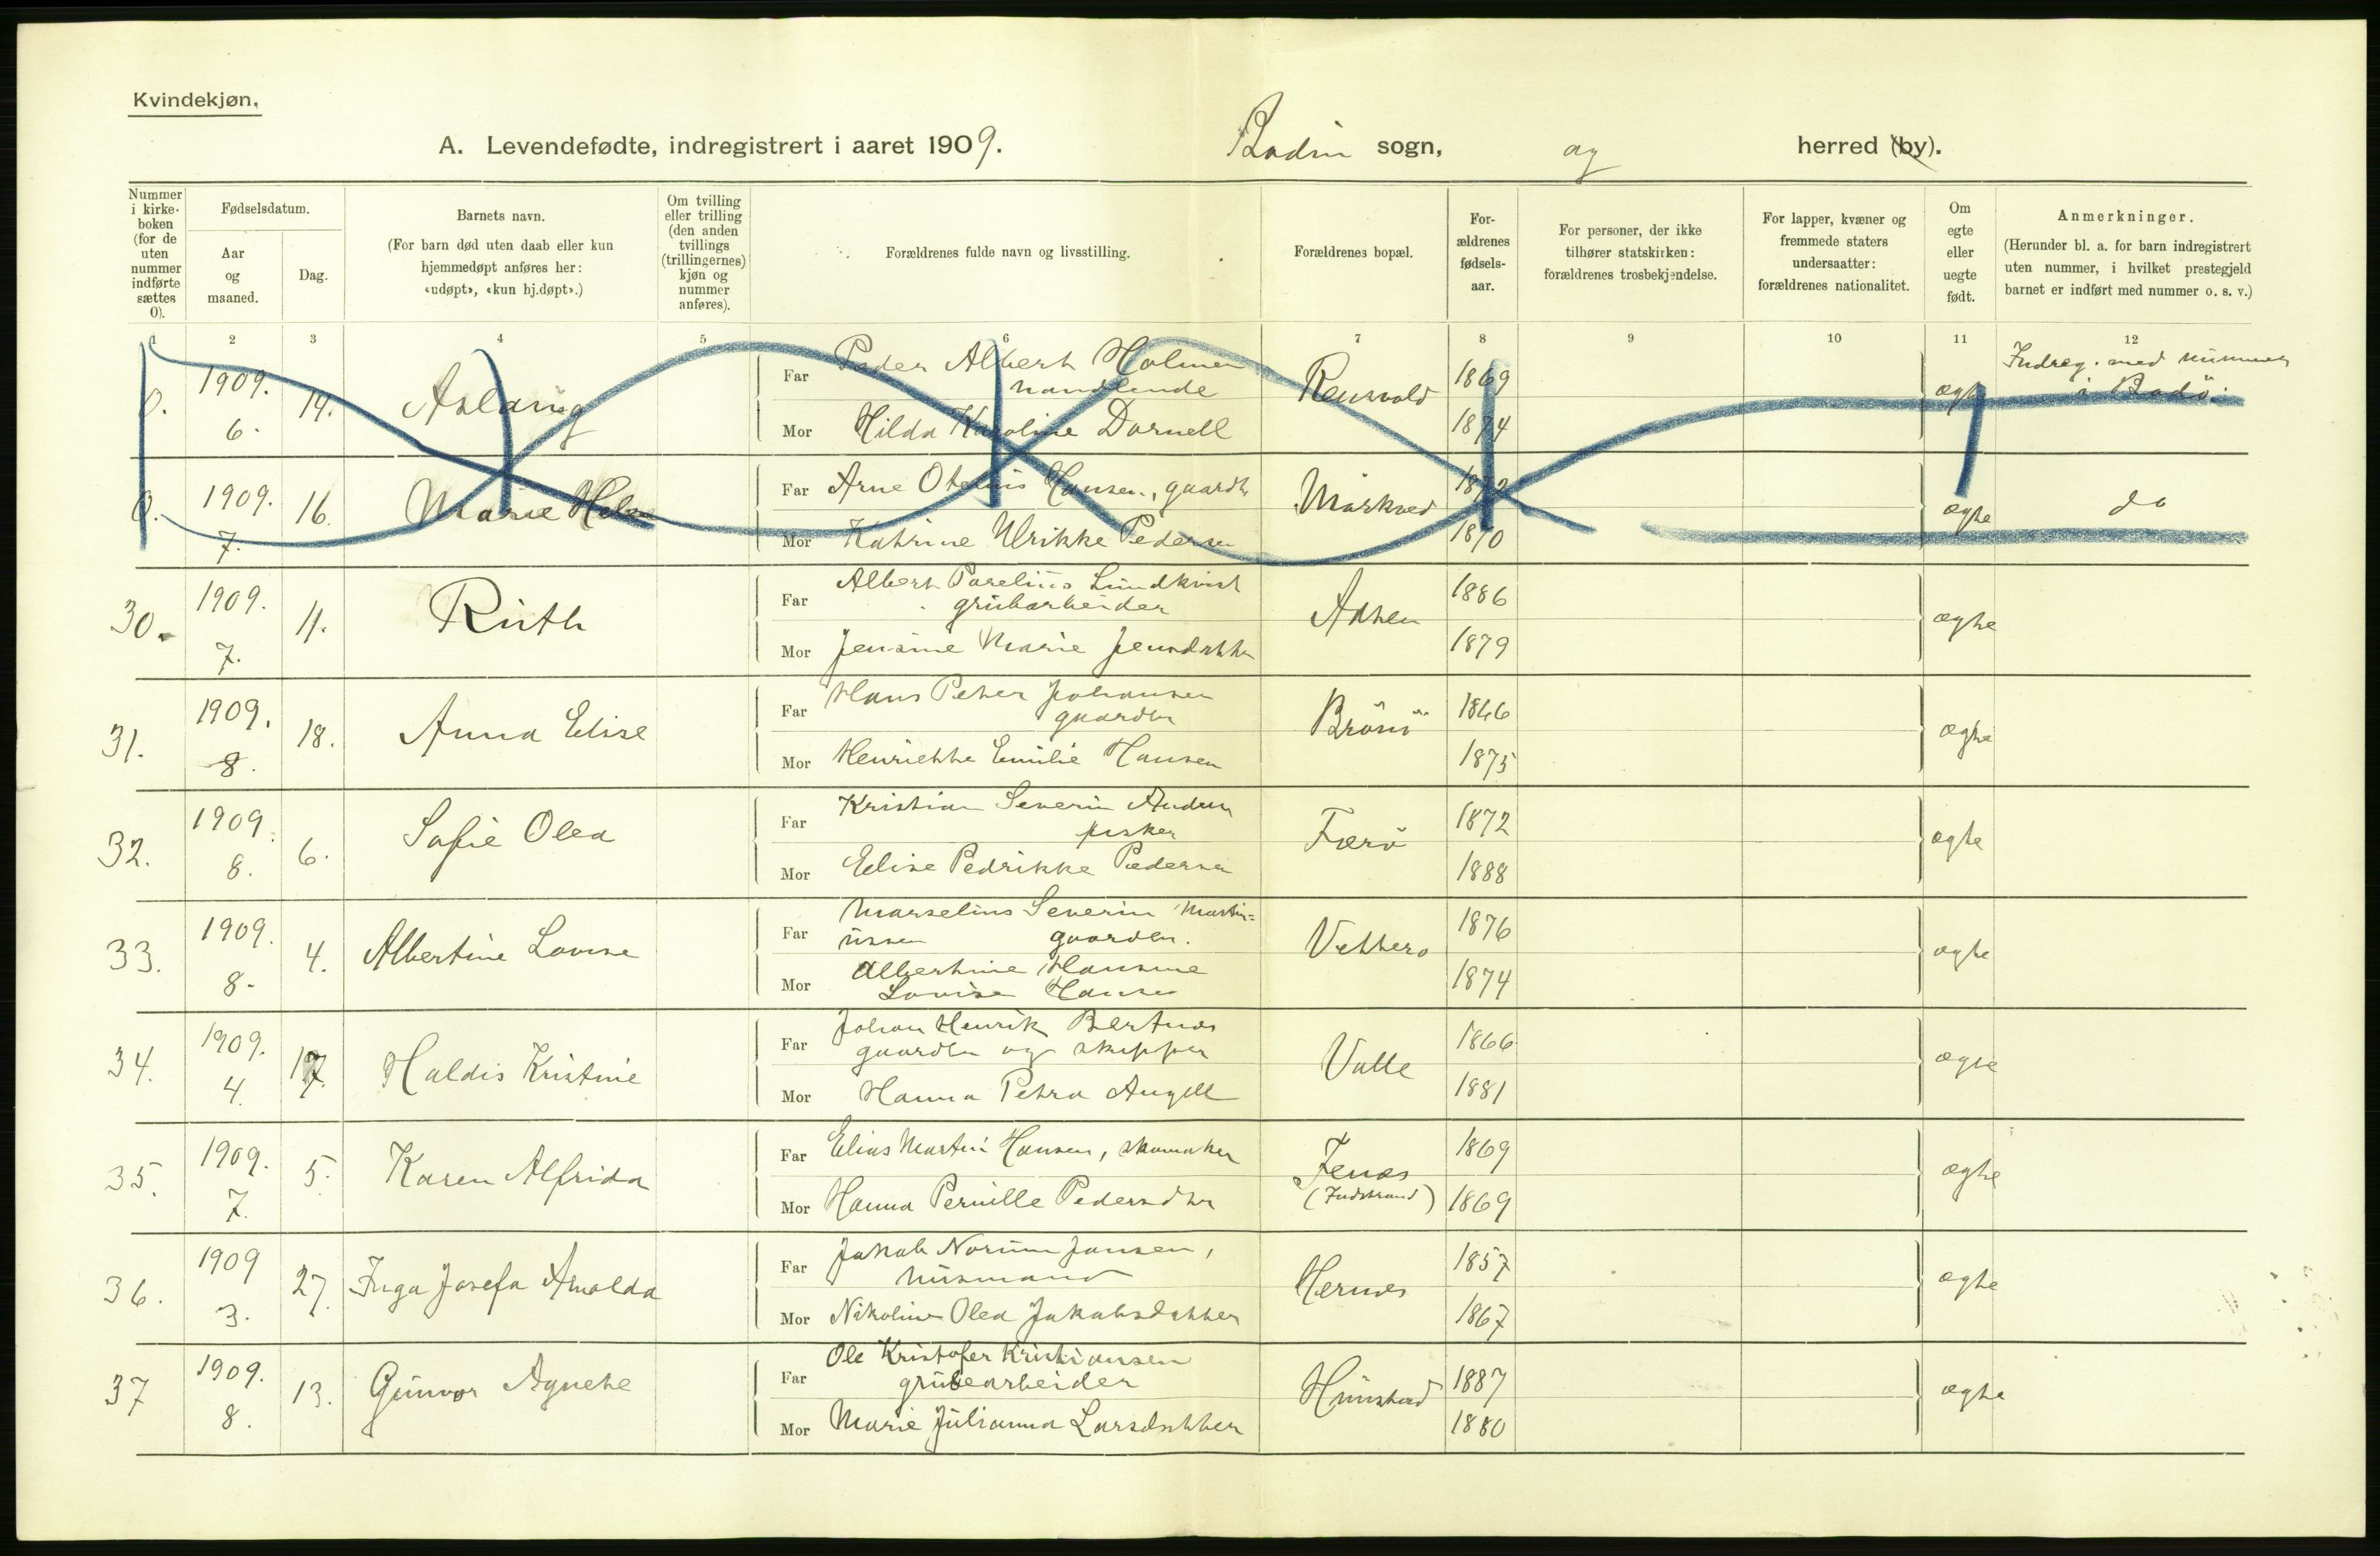 Kvindekjøn.
A. Levendefødte, indregistrert i aaret 1909. Bodin sogn, og herred (by).
Nummer i kirke-boken (for de uten nummer indførte sættes 0).
Fødselsdatum.
Aar og maaned.
Dag.
Barnets navn.
(For barn død uten daab eller kun hjemmedøpt anføres her: «udøpt», «kun hj.døpt».)
Om tvilling eller trilling (den anden tvillings (trillingernes) kjøn og nummer anføres).
Forældrenes fulde navn og livsstilling.
Forældrenes bopæl.
For-ældrenes fødsels-aar.
For personer, der ikke tilhører statskirken: forældrenes trosbekjendelse.
For lapper, kvæner og fremmede staters undersaatter: forældrenes nationalitet.
Om egte eller uegte født.
Anmerkninger.
(Herunder bl. a. for barn indregistrert uten nummer, i hvilket prestegjeld barnet er indført med nummer o. s. v.)
1 2 3 4 5 6 7 8 9 10 11 12
0. 1909. 6. 14. Aslaug
Far Peder Albert Holmen handlende 1869
Mor Hilda Karoline Dornell 1874
Rensvold ægte Indreg. med nummer i Bodö.
0. 1909. 7. 16. Marie
Far Arne Hansen, gaardbr
Mor Katrine Ulrikke Pedersen 1870
Mörkved ægte do
30. 1909. 7. 11. Ruth
Far Albert Lundkvist grubarbeider 1886
Mor Jensine Marie 1879
ægte
31. 1909. 8. 18. Anna Elise
Far Hans Peter Johansen gaardbr 1866
Mor Henriette Emilie Hansen 1875
ægte
32. 1909. 8. 6. Sofie Olea
Far Kristian Severin fisker 1872
Mor Elise Pedrikke Pedersen 1888
ægte
33. 1909. 8. 4. Albertine Lovise
Far Marselius Severin Martin=
ussen gaardbr. 1876
Mor Albertine Hansine
Lovise Hansen 1874
ægte
34. 1909. 4. 17. Haldis Kristine
Far Johan Henrik Bertnes
gaardbr og skipper 1866
Mor Hanna Petra Angell 1881
Valle ægte
35. 1909. 7. 5. Karen Alfrida
Far Elias Martin Hansen, skomaker 1869
Mor Hanna Pernille Pedersdtr 1869
Fenes (Indstrand) ægte
36. 1909 3. 27. Inga Josefa Arnolda
Far Jakob Norum Jansen,
husmand 1857
Mor Nikoline Olea Jakobsdatter 1867
Hernes ægte
37 1909. 8. 13. Gunvor Agnete
Far Ole Kristofer Kristiansen
grubearbeider 1887
Mor Marie Julianna Larsdatter 1880
Hunstad ægte